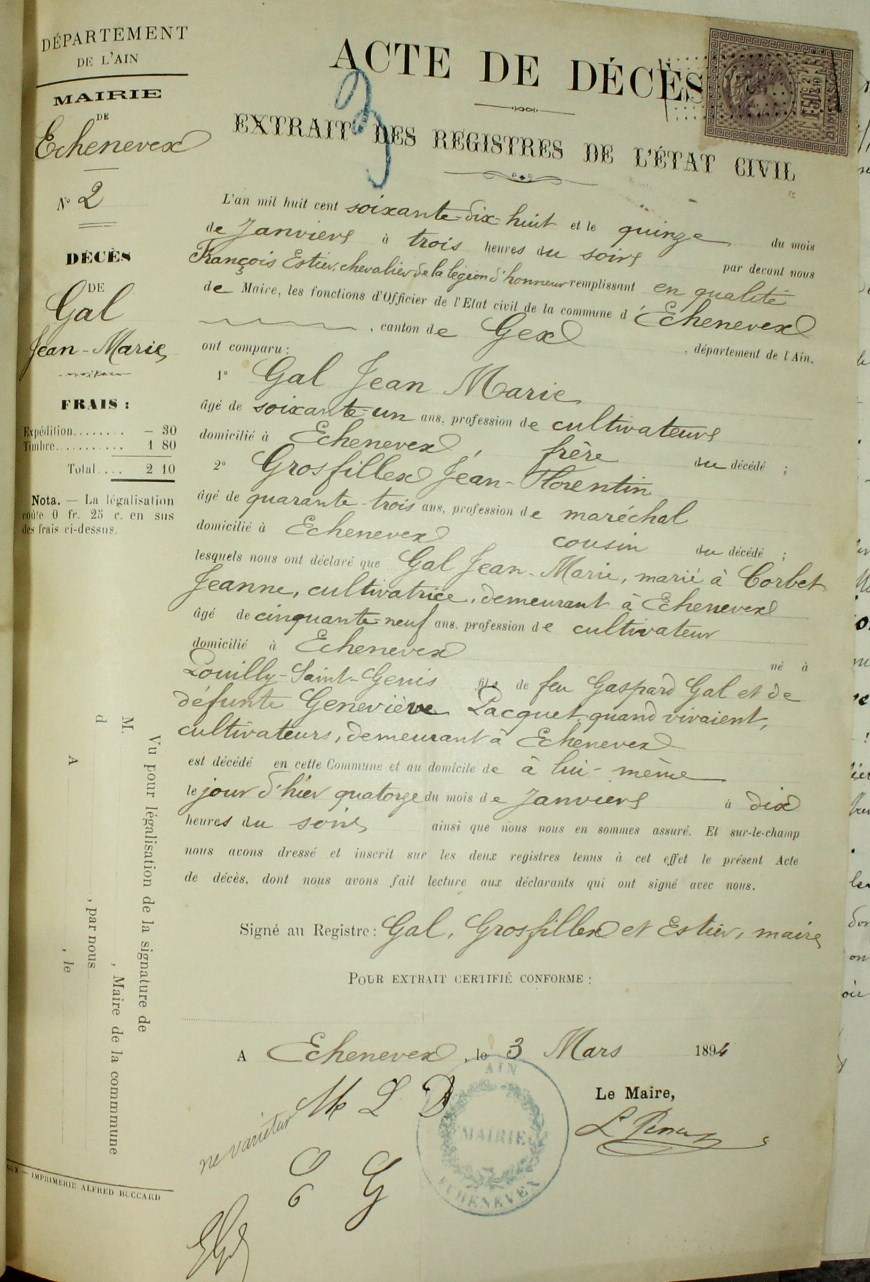 DÉPARTEMENT
DE L'AIN
MAIRIE
DE
Echenevex
N° 2
DÉCÈS
DE
Gal
Jean-Marie
FRAIS :
Expédition........ – 30
Timbre.......... 1 80
Total.... 2 10
Nota. — La légalisation
coûte 0 fr. 25 c. en sus
des frais ci-dessus.
Vu pour légalisation de la signature de
M. , Maire de la commune
d , par nous
A , le
GEX – IMPRIMERIE ALFRED BUCCARD
ACTE DE DÉCÈS
3
EXTRAIT DES REGISTRES DE L'ÉTAT CIVIL
L'an mil huit cent soixante-dix-huit et le quinze du mois
de Janviers à trois heures du soirs par devant nous
François Estier, chevalier de la légion d'honneur remplissant en qualité
de Maire, les fonctions d'Officier de l'Etat civil de la commune d'Echenevex
, canton de Gex , département de l'Ain,
ont comparu :
1° Gal Jean Marie
âgé de soixante-un ans, profession de cultivateurs
domicilié à Echenevex , frère du décédé ;
2° Grosfillex Jean-Florentin
âgé de quarante-trois ans, profession de maréchal
domicilié à Echenevex cousin du décédé ;
lesquels nous ont déclaré que Gal Jean-Marie, marié à Corbet
Jeanne, cultivatrice, demeurant à Echenevex
âgé de cinquante neuf ans, profession de cultivateur
domicilié à Echenevex né à
Pouilly-Saint-Genis fils de feu Gaspard Gal et de
défunte Geneviève Pacquet quand vivaient,
cultivateurs, demeurant à Echenevex
est décédé en cette Commune et au domicile de à lui-même
le jour d'hier quatorze du mois de Janviers à dix
heures du soirs ainsi que nous nous en sommes assuré. Et sur-le-champ
nous avons dressé et inscrit sur les deux registres tenus à cet effet le présent Acte
de décès, dont nous avons fait lecture aux déclarants qui ont signé avec nous.
Signé au Registre : Gal, Grosfillex et Estier, maire
POUR EXTRAIT CERTIFIÉ CONFORME :
A Echenevex , le 3 Mars 1894
Le Maire,
ne varietur
M L D
G
AIN
MAIRIE
ECHENEVEX